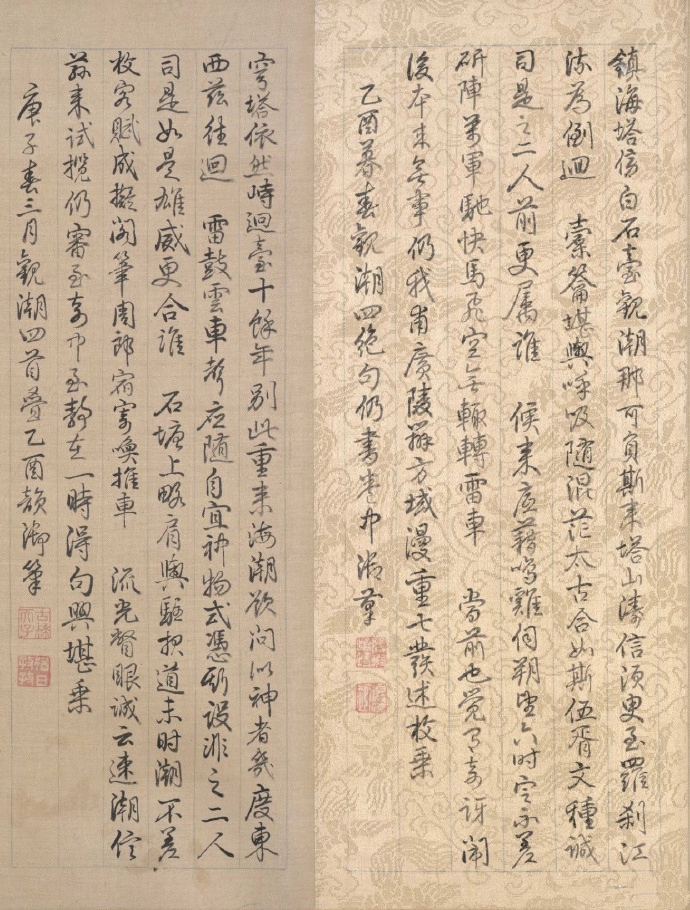 鎮海塔傍白石臺觀潮那可負斯来塔山濤信須臾至羅剎江
流為倒迴　橐籥堪輿呼吸随混茫太古合如斯伍胥文種誠
司是之二人前更屬誰　候来底藉鳴雞伺朔望六時定不差
斫陣萬軍馳快馬飛空無轍轉雷車　當前也覺有奇訝鬧
後本来無事仍我甫廣陵辦方域漫重七發述枚乗
乙酉暮春觀潮四絶句仍書卷中御筆
穹塔依然峙迥臺十餘年别此重来海潮欲问似神者幾度東
西茲往迴　雷鼓雲車聲應随自宜神物式憑斯設非之二人
司是如是雄威更合誰　石塘上略肩輿駐报道未時潮不差
枚客賦成擬閣筆周郎宿寄喚推車　流光瞥眼誠云速潮信
茲来試攬仍審至奇中至静在一時得句興堪乗
庚子春三月觀潮四首疊乙酉韻御筆
古稀天子
猶日孜孜